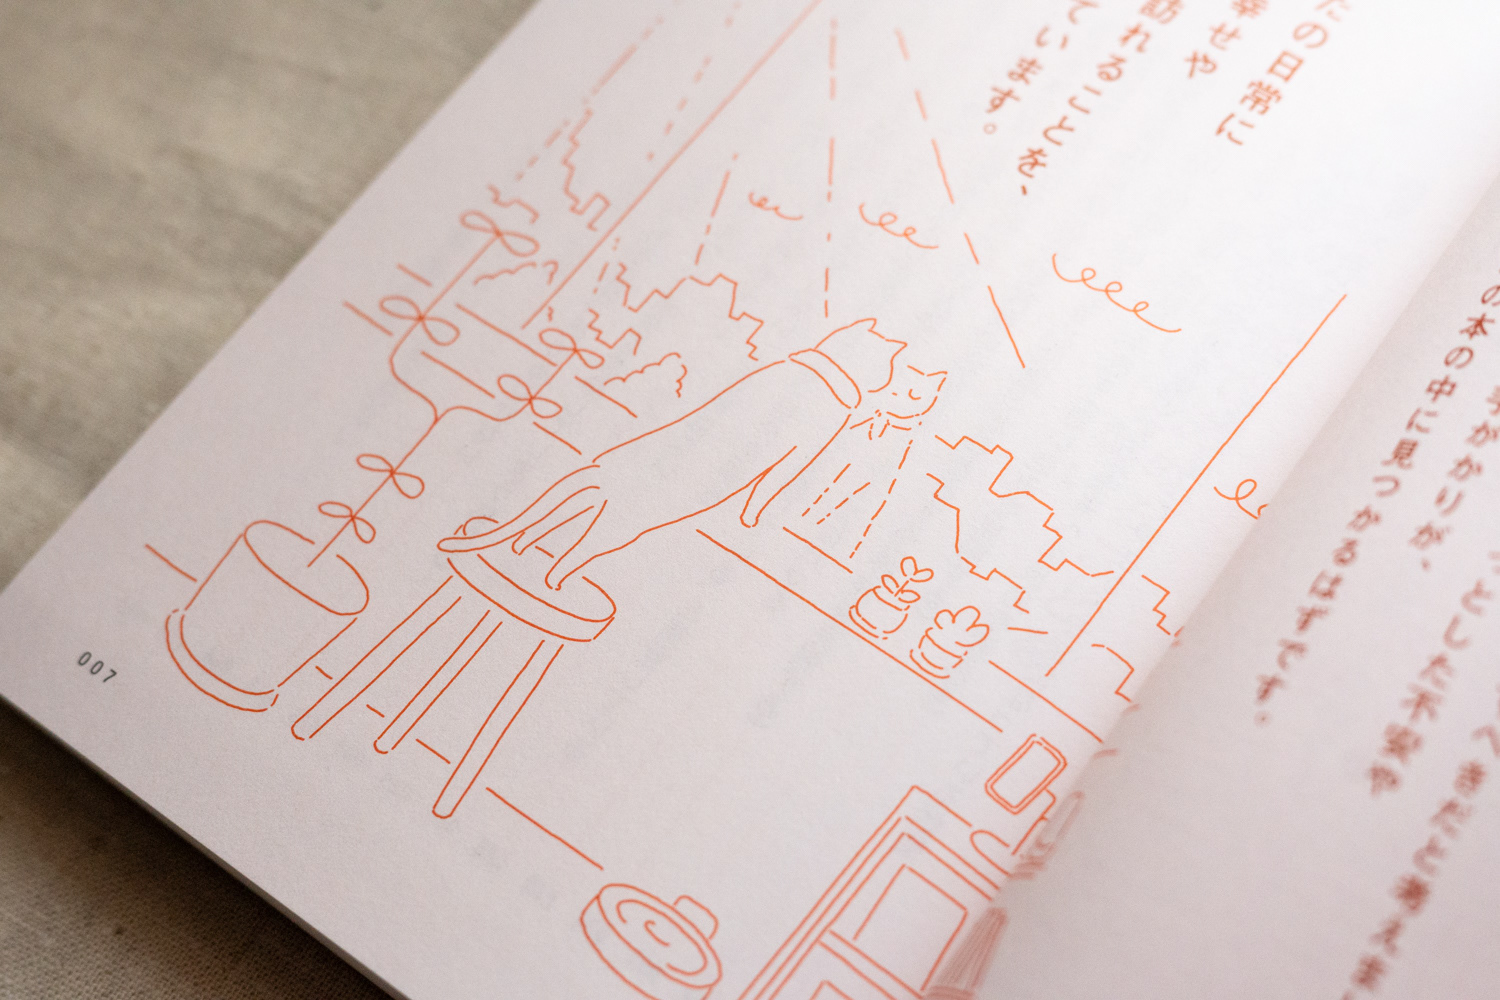 たの日常に
幸せや
訪れることを、
ています。
の本の中に見つかるはずです。
手がかりが、
っとした不安や
べきだと考えま
007